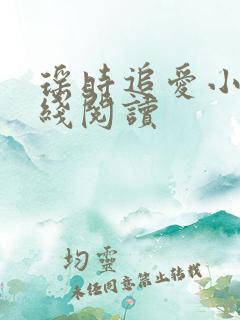 瑶時追愛小
綫閱讀
均靈
未经同意禁止转载